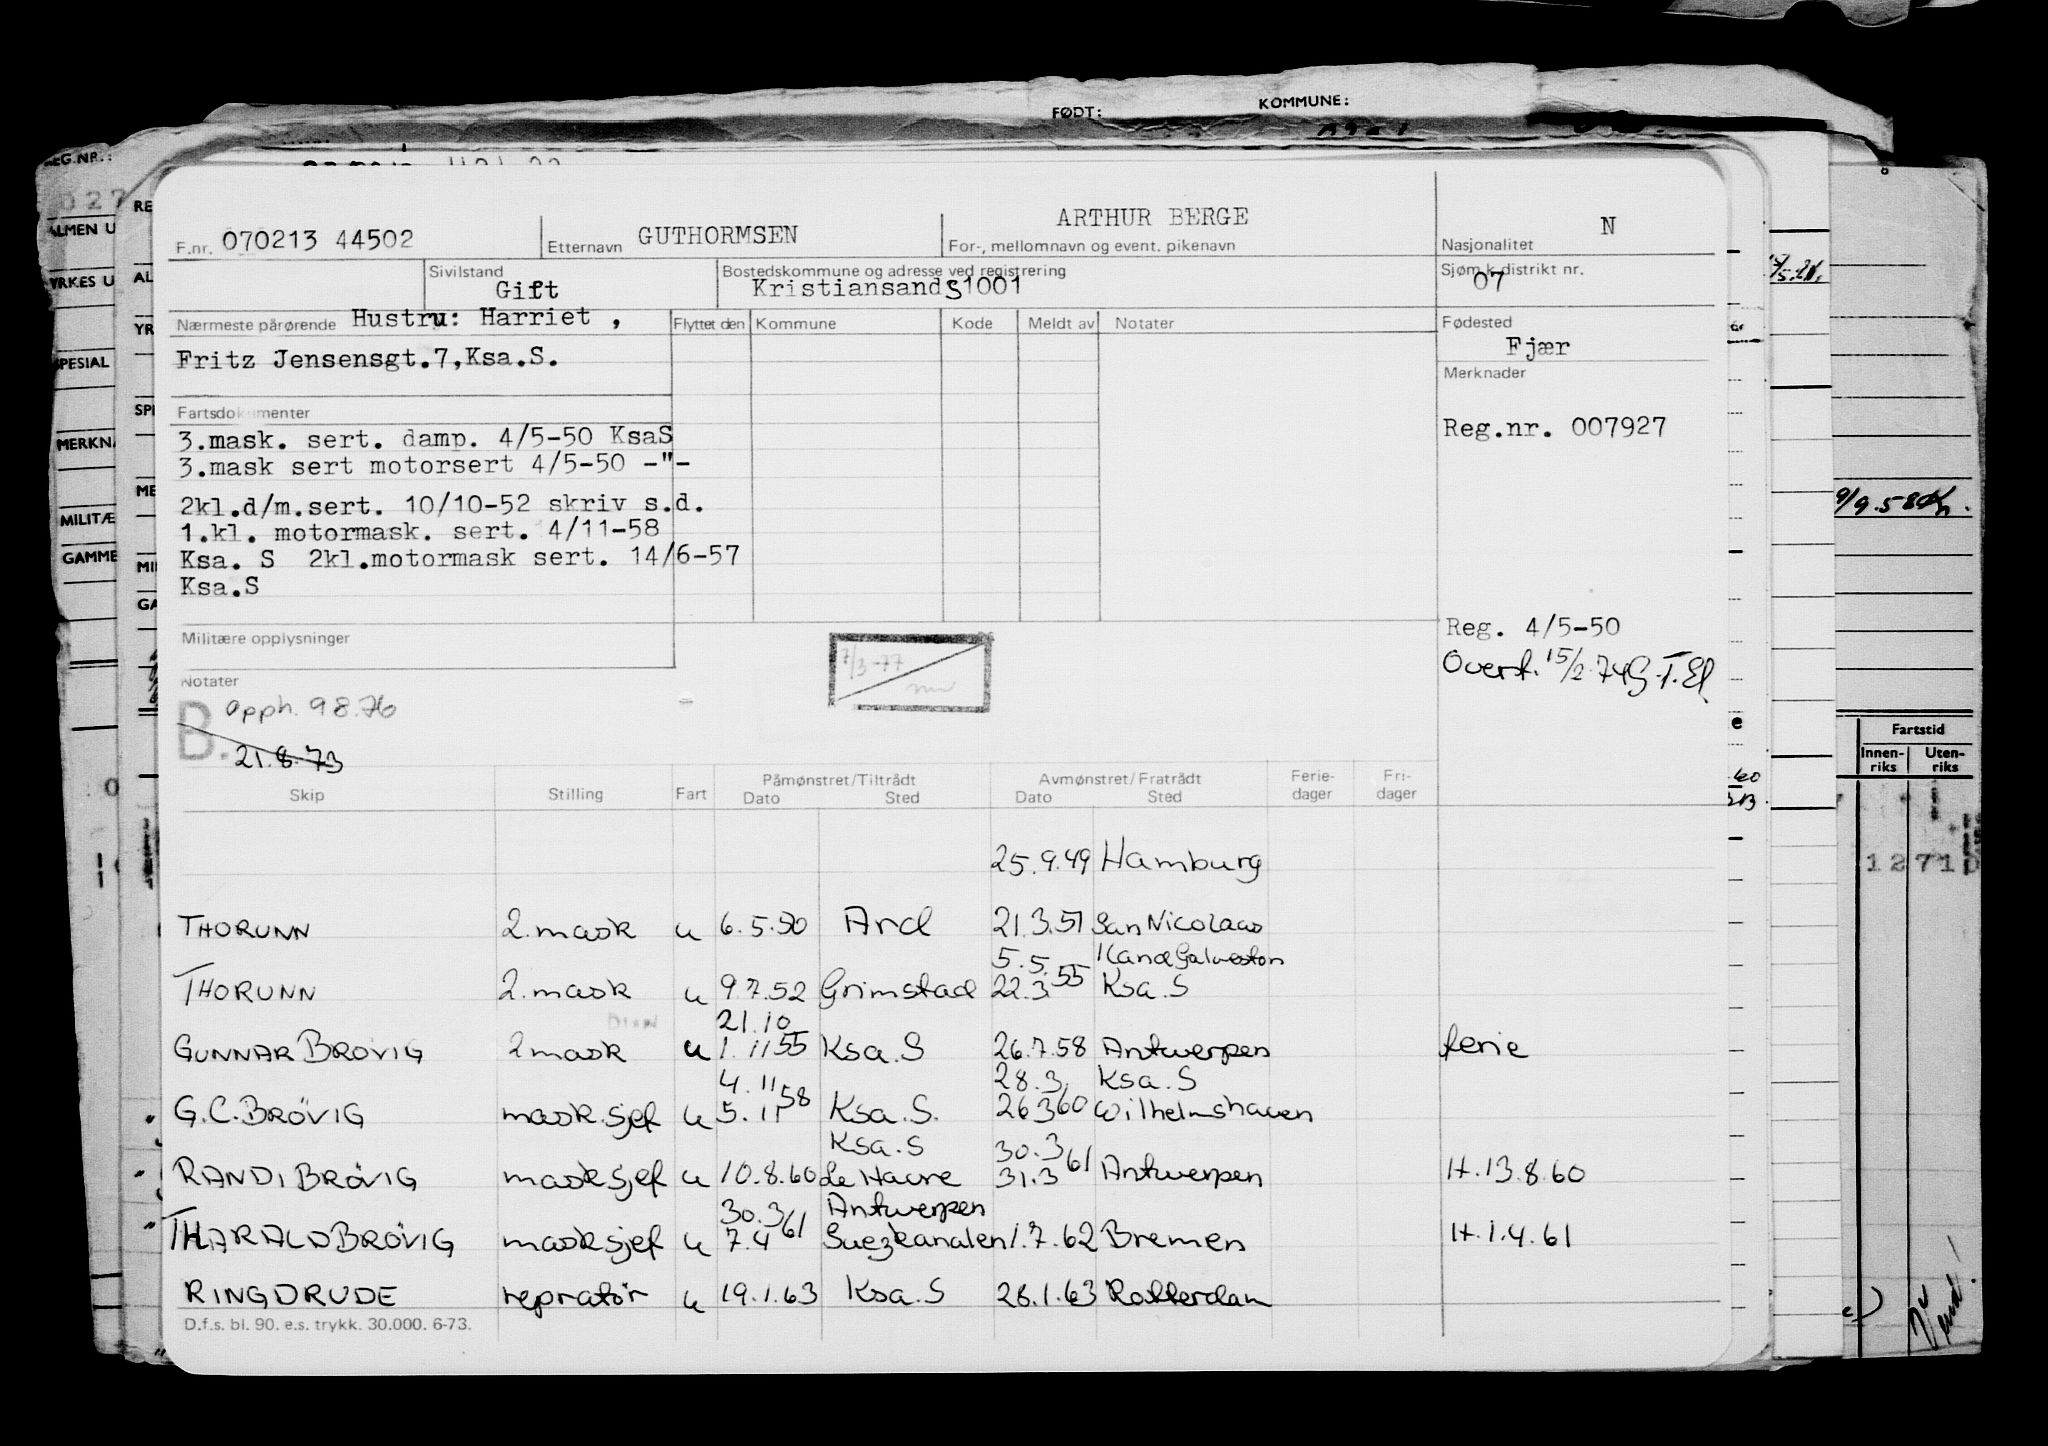 FØDT: KOMMUNE:
F.nr. 070213 44502 Etternavn GUTHORMSEN ARTHUR BERGE For-, mellomnavn og event. pikenavn Nasjonalitet N
Sivilstand Gift Bostedskommune og adresse ved registrering Kristiansand S 1001 Sjøm.k.distrikt nr. 07
Nærmeste pårørende Hustru: Harriet , Flyttet den Kommune Kode Meldt av Notater Fødested
Fritz Jensensgt.7,Ksa.S. Fjær
Merknader
Fartsdokumenter
3.mask. sert. damp. 4/5-50 KsaS Reg.nr. 007927
3.mask sert motorsert 4/5-50 -"-
2kl.d/m.sert. 10/10-52 skriv s.d.
1.kl. motormask. sert. 4/11-58
Ksa. S 2kl.motormask sert. 14/6-57
Ksa.S
Militære opplysninger Reg. 4/5-50
7/3-77 Overf. 15/2.74
Notater
B. Opph. 9 8.76
21.8.73
Skip Stilling Fart Påmønstret/Tiltrådt Dato Sted Avmønstret/Fratrådt Dato Sted Ferie-dager Fri-dager
25.9.49 Hamburg
THORUNN 2.mask u 6.5.50 Ard 21.3.51 San Nicolaas
5.5. Galveston
THORUNN 2.mask u 9.7.52 Grimstad 22.3 55 Ksa.S
21.10
GUNNAR BRØVIG 2mask u 1.11 55 Ksa.S 26.7.58 Antwerpen ferie
4.11 28.3 Ksa.S
G.C.BRØVIG mask.sjef u 5.11 58 Ksa.S. 26.3 60 Wilhelmshaven
Ksa.S 30.3
RANDI BRØVIG masksjef u 10.8.60 Le Havre 31.3 61 Antwerpen H.13.8.60
30.3 Antwerpen
THARALD BRØVIG masksjef u 7.4 61 Suezkanalen 1.7.62 Bremen H.1.4.61
RINGDRUDE repratør u 19.1.63 Ksa.S 28.1.63 Rotterdam
D.f.s. bl. 90. e.s. trykk. 30.000. 6-73.
Fartstid
Innen-riks Uten-riks
1271